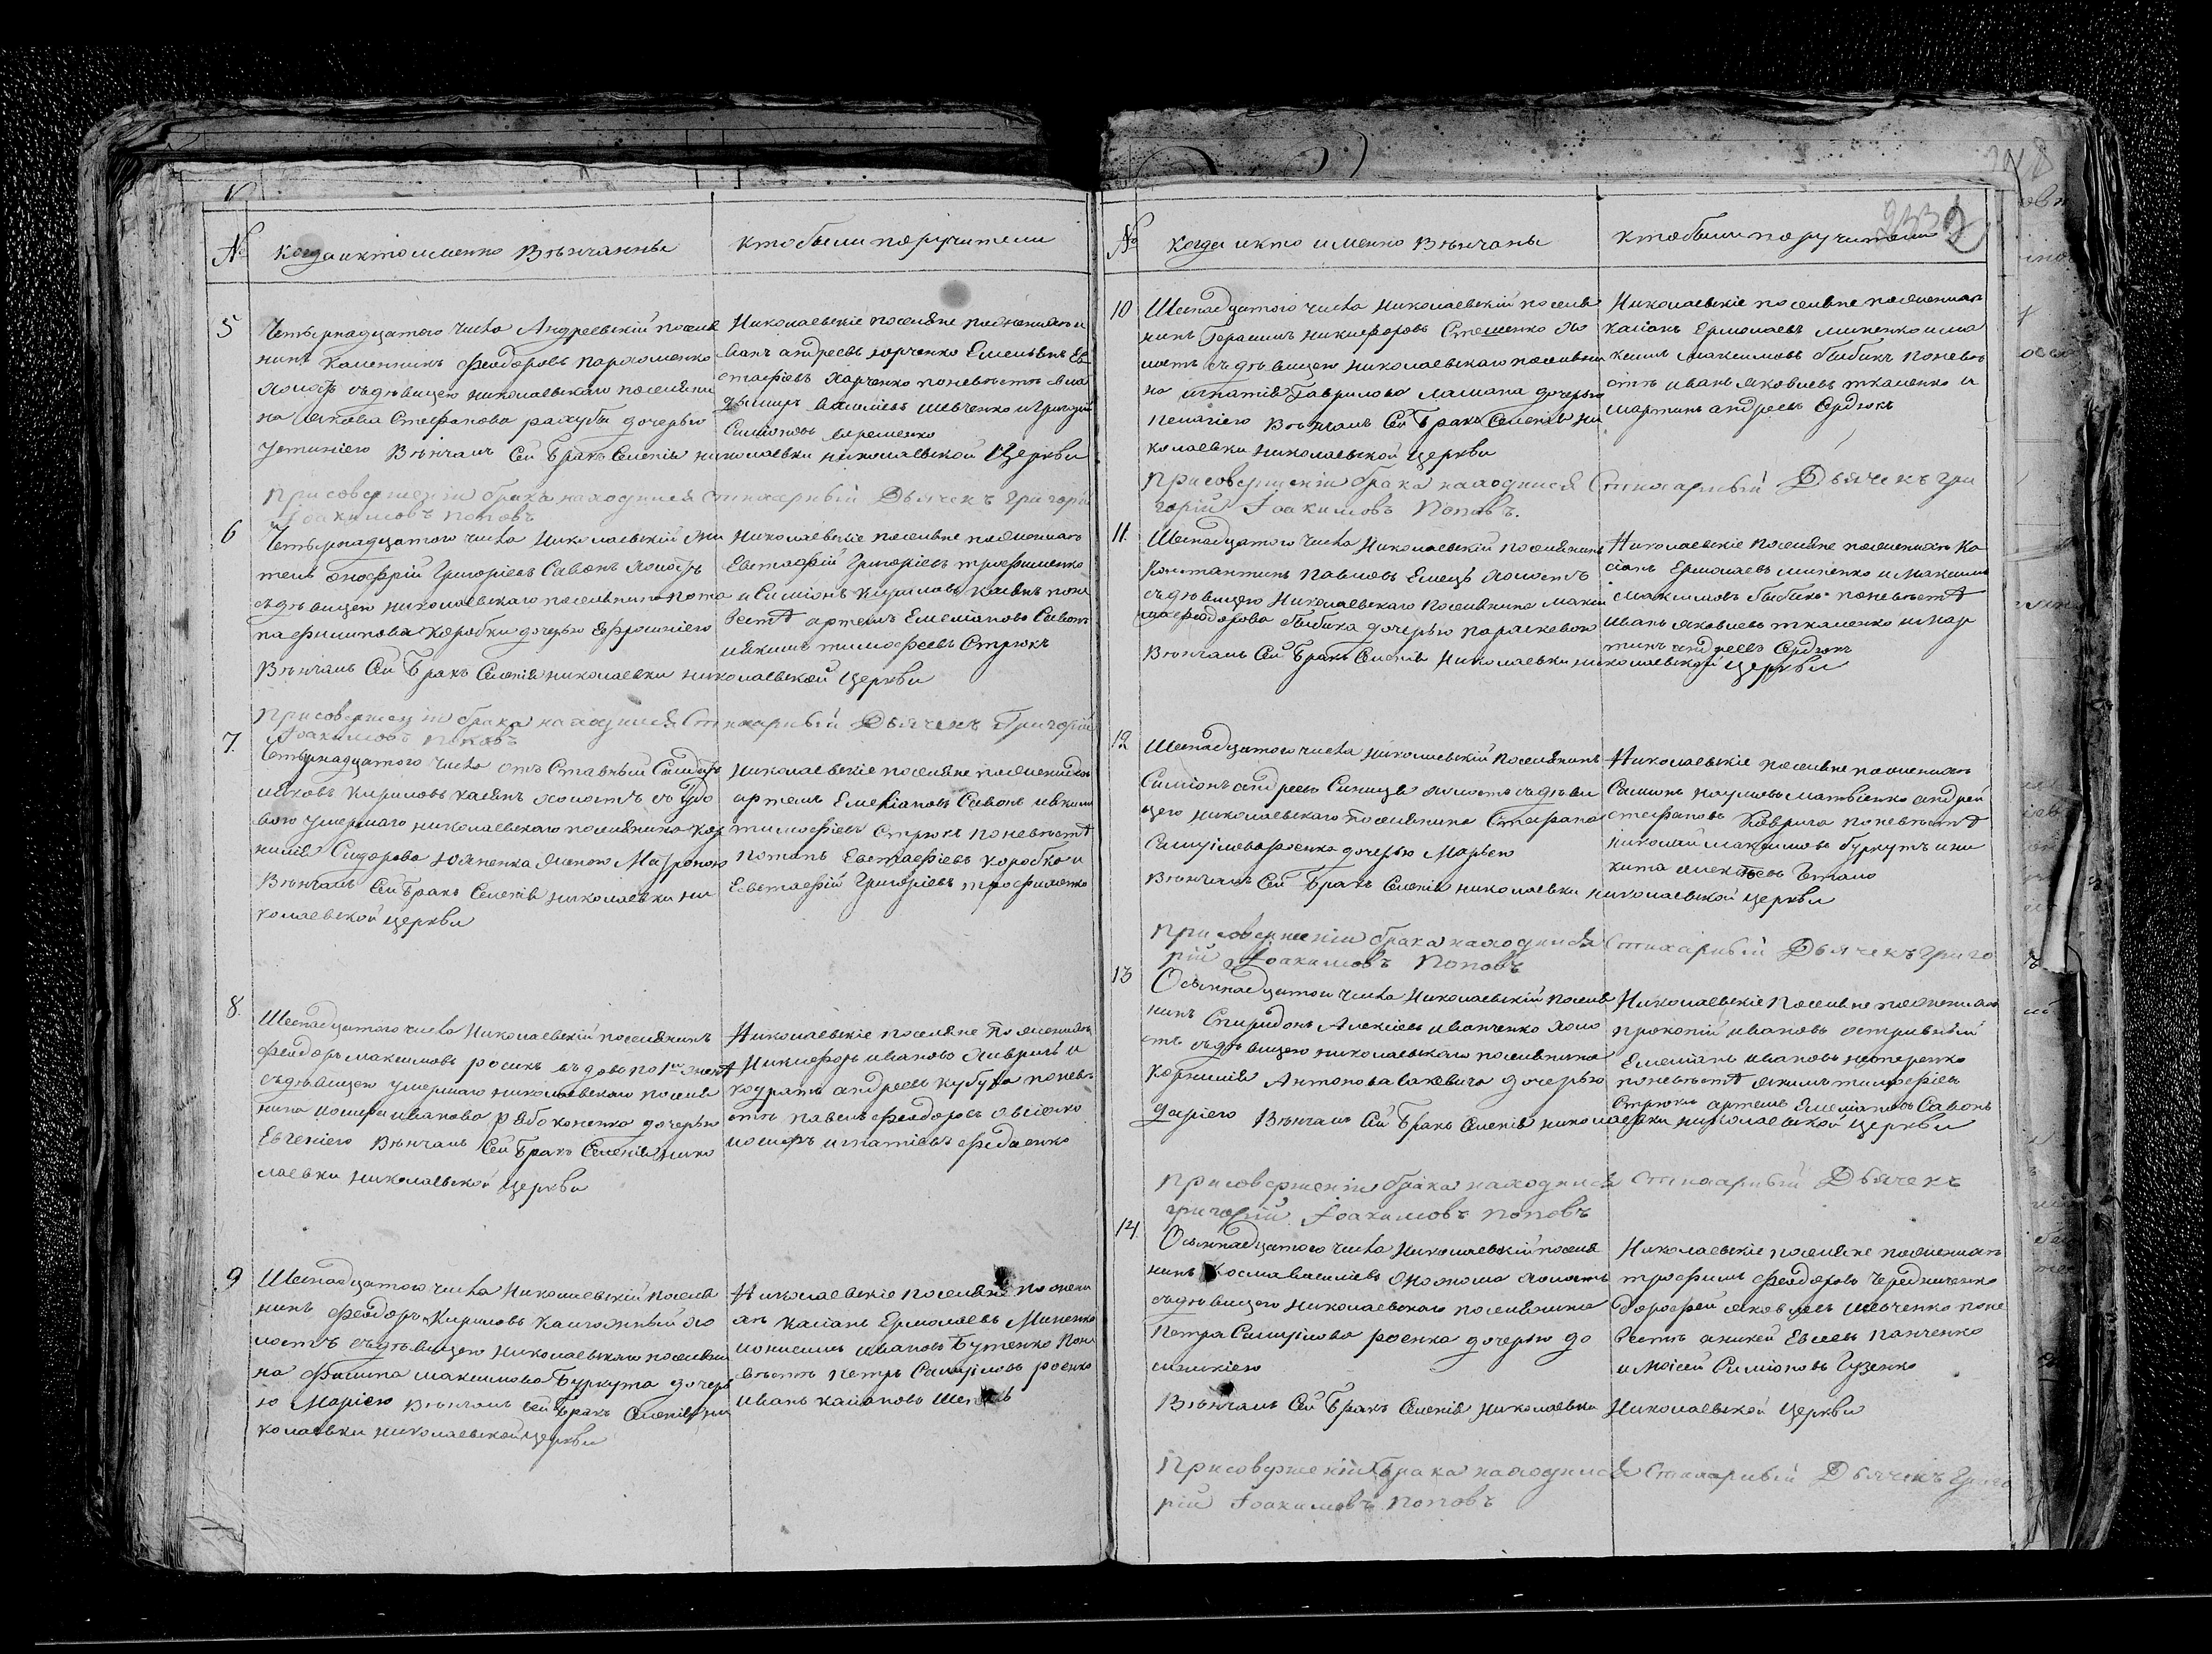 №
Когда и кто именно Венчанны
кто были поручители
5
Четырнадцатого числа Андреевскій поселя
нинъ Каленникъ Феодоровъ Пархоменко
холостъ съ дѣвицею николаевскаго поселяни
на Іякова Стефанова рахубы дочерью
Устиніею Вѣнчалъ Сей Бракъ Селенія николаевки николаевской Церкви
Николаевскіе поселяне по женихѣ и
ванъ андреевъ юрченко Емельянъ Ев
стафіевъ Харченко по невѣстѣ вла
дымиръ василіевъ шевченко и Григорій
Симіоновъ яременко
При совершеніи брака находился Стихарный Дьячекъ Григорій
Іоакимовъ Поповъ
6
Четырнадцатого числа Николаевскій жи
тель онофрій Григоріевъ Савонъ холостъ
съ дѣвицею николаевскаго поселянина пота
па филипова коробки дочерью Ефросиніею
Вѣнчалъ Сей Бракъ Селенія николаевки николаевской Церкви
Николаевскіе поселяне по женихѣ
Евстафій Григоріевъ трофименко
и Симіонъ Кириловъ Касянъ поне
вестѣ артемъ Емеліановъ Савонъ
иякимъ тимофеевъ Стрюкъ
При совершеніи брака находился Стихарный Дьячекъ Григорій
Іоакимовъ Поповъ
7.
Четырнадцатого числа отъ Ставный Салдатъ
ияковъ Кириловъ касянъ холостъ съ вдо
вою умершаго николаевскаго поселянина Кор
нилія Сидорова женою Матроною
Вѣнчалъ Сей Бракъ Селенія николаевки ни
колаевской церкви
Николаевскіе поселяне по женихѣ
артемъ Емеліановъ Савонъ иякимъ
тимофіевъ Стрюкъ по невѣстѣ
потапъ Евстафіевъ коробка и
Евстафій Григоріевъ трофименко
8.
Шестнадцатого числа Николаевскій поселянинъ
Феодоръ Максимовъ росикъ вдовъ по 1мъ
съ дѣвицею умершаго николаевскаго поселя
нина иванова рябоконенка дочерью
Евгеніею Вѣнчалъ Сей Бракъ Селенія нико
лаевки николаевской церкви
Николаевскіе поселяне по женихѣ
Никифоръ ивановъ и
кодратъ андреевъ по невѣ
стѣ павелъ феодоровъ
иосифъ игнатіевъ феденко
9
Шестнадцатого числа Николаевскій поселя
нинъ Феодоръ Кириловъ хо
лостъ съ дѣвицею николаевскаго поселяни
на Филипа максимова Буркута дочерь
ю Маріею Вѣнчалъ Сей Бракъ Селенія ни
колаевки николаевской церкви
Николаевскіе поселяне по жени
хѣ Касіанъ Ермолаевъ Миненко
ивановъ Бутенко по не
вѣстѣ петръ Самуіловъ роенко
иванъ касіановъ
№
Когда и кто именно Вѣнчаны
кто были поручители
10
Шестнадцатого числа Николаевскій поселя
нинъ Герасимъ никифоровъ Стешенко хо
лостъ съ дѣвицею николаевскаго поселяни
на игнатія Гаврилова Ламана дочерью
пелагіею Вѣнчалъ Сей Бракъ Селенія Ни
колаевки Николаевской Церкви
Николаевскіе поселяне по женихѣ
касіанъ Ермолаевъ миненко и ма
ксимъ максимовъ быбикъ по невѣ
стѣ иванъ яковлевъ ткаченко и
мартинъ андреевъ Сердюкъ
При совершеніи брака находился Стихарный Дьячекъ Гри
горій Іоакимовъ Поповъ.
11.
Шестнадцатого числа Николаевскій поселянинъ
Константинъ Павловъ Емецъ холостъ
съ дѣвицею Николаевскаго Поселянина макси
ма феодорова быбика дочерью параскевою
Вѣнчалъ Сей Бракъ Селенія Николаевки николаевской церкви
Николаевскіе поселяне по женихѣ Ка
сіанъ Ермолаевъ миненко и Максимъ
Максимовъ быбикъ по невѣстѣ
иванъ яковлевъ ткаченко и мар
тинъ андреевъ Сердюкъ
12
Шестнадцатого числа Николаевскій поселянинъ
Симіонъ андреевъ Синица холостъ съ дѣви
цею николаевскаго поселянина Стефана
Самуілова роенка дочерью Марьею
Вѣнчалъ Сей Бракъ Селенія николаевки николаевской церкви
Николаевскіе поселяне по женихѣ
наумовъ матвіенко андрей
стефановъ по невѣстѣ
николай максимовъ буркутъ ини
кита
При совершеніи брака находился Стихарный Дьячекъ Григо
рій Іоакимовъ Поповъ
13
Осьмнадцатого числа Николаевскій поселя
нинъ Спиридонъ Алексіевъ иванченко холо
стъ съ дѣвицею николаевскаго поселянина
Корнилія Антонова дочерью
даріею Вѣнчалъ Сей Бракъ Селенія николаевки николаевской Церкви
Николаевскіе Поселяне по женихѣ
прокопій ивановъ
Емеліанъ ивановъ
по невѣстѣ якимъ тимофіевъ
Стрюкъ артемъ Емеліановъ Савонъ
При совершеніи брака находился Стихарный Дьячекъ
григорій Іоакимовъ Поповъ
14.
Осьмнадцатого числа Николаевскій поселя
нинъ Косма василіевъ холостъ
съ дѣвицею николаевскаго поселянина
Петра Самуілова роенка дочерью до
мникіею
Вѣнчалъ Сей Бракъ Селенія Николаевки Николаевской Церкви
Николаевскіе поселяне по женихѣ
трофимъ феодоровъ Чередниченко
дорофей яковлевъ шевченко поне
вѣстѣ аникей Евсеевъ панченко
и Моісей Симіоновъ Гузенко
При совершеніи Брака находился Стихарный Дьячекъ Григо
рій Іоакимовъ Поповъ